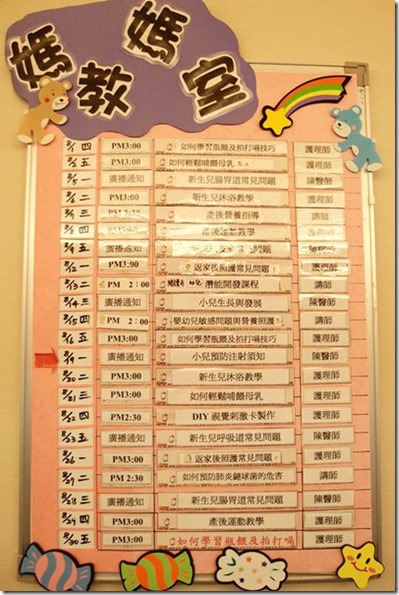 媽媽教室
8/1 四 PM3:00 如何學習瓶餵及拍打嗝技巧 護理師
8/2 五 PM3:00 如何輕鬆哺餵母乳 護理師
8/5 一 廣播通知 新生兒腸胃道常見問題 陳醫師
8/6 二 PM3:00 新生兒沐浴教學 護理師
8/7 三 PM 2:30 產後營養指導 講師
8/8 四 PM3:00 產後運動教學
8/9 五 廣播通知 常見問題
8/12 一 PM3:00 返家後照護常見問題 護理師
8/13 二 PM 2:00 潛能開發課程 講師
8/14 三 廣播通知 小兒生長與發展 陳醫師
8/15 四 PM 2:00 嬰幼兒敏感問題與營養照護 講師
8/16 五 PM3:00 如何學習瓶餵及拍打嗝技巧 護理師
8/19 一 廣播通知 小兒預防注射須知 陳醫師
8/20 二 PM3:00 新生兒沐浴教學 護理師
8/21 三 PM3:00 如何輕鬆哺餵母乳 護理師
8/22 四 PM2:30 DIY 視覺刺激卡製作 護理師
8/23 五 廣播通知 新生兒呼吸道常見問題 陳醫師
8/26 一 PM3:00 返家後照護常見問題 護理師
8/27 二 PM 2:30 如何預防肺炎鏈球菌的危害 講師
8/28 三 廣播通知 新生兒腸胃道常見問題 陳醫師
8/29 四 PM3:00 產後運動教學 護理師
8/30 五 PM3:00 如何學習瓶餵及拍打嗝 護理師